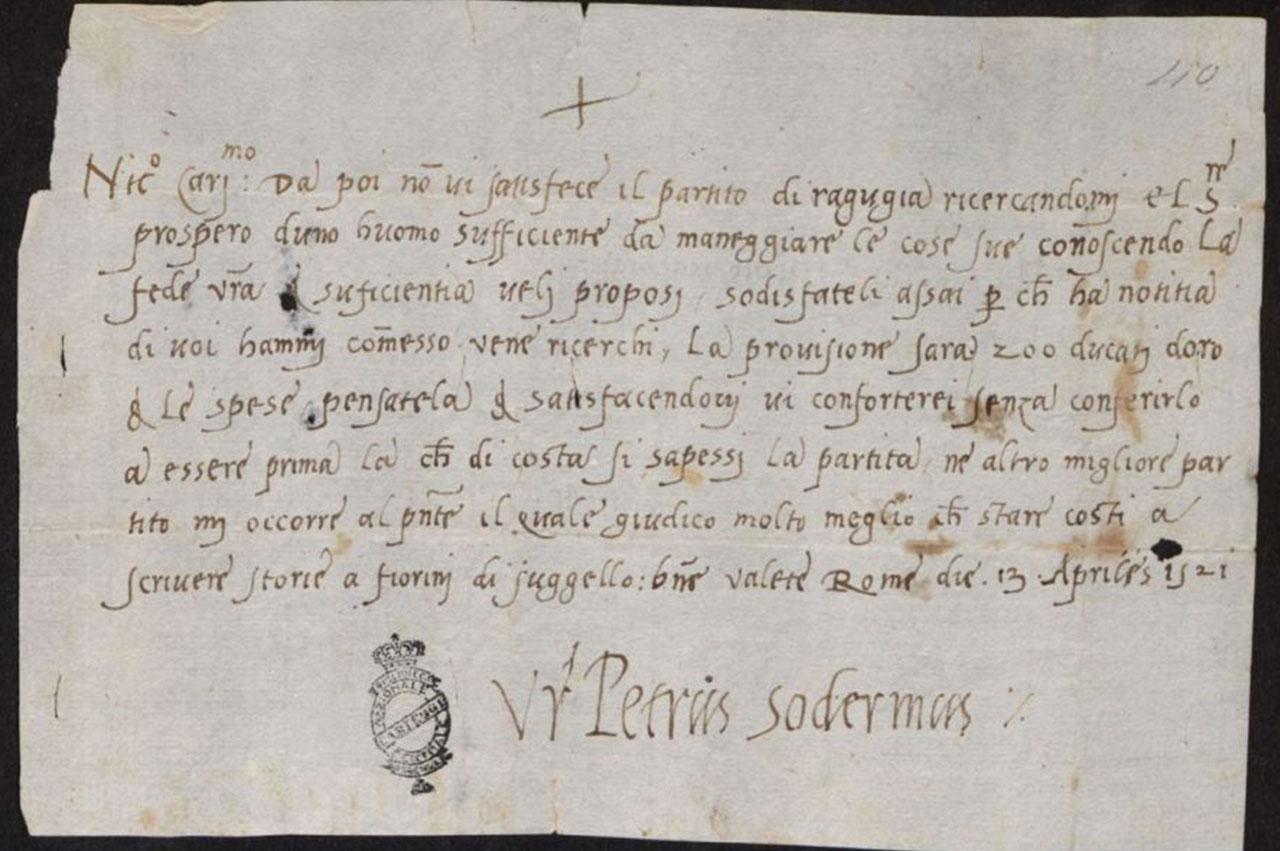 110
+
Nic.º Car.mo: Da poi nõ ui satisfece il partito di ragugia ricercandomi el S.re
prospero duno huomo sufficiente da maneggiare le cose sue conoscendo la
fede vr̃a & suficientia veli proposi, sodisfateli assai p̱ ch̃ ha notitia
di uoi hammi com̃esso vene ricerchi, La prouisione sara 200 ducati doro
& le spese pensatela & satisfacendoui ui conforterei senza conferirlo
a essere prima la ch̃ di costa si sapessi la partita, ne altro migliore par
tito mi occorre al pñte il quale giudico molto meglio ch̃ stare costi a
scriuere storie a fiorini di suggello: bñe valete Rome die. 13. Aprilis 1521
Vr̃ Petrus soderinus